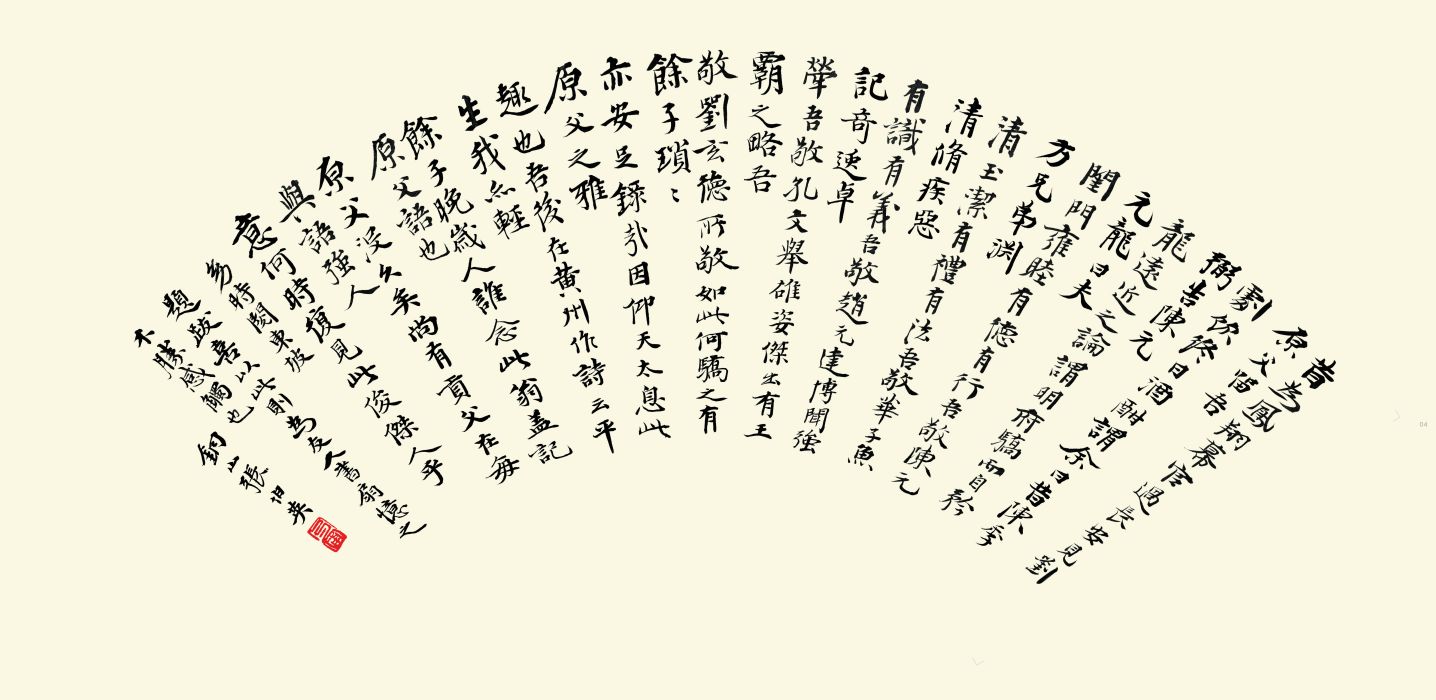 昔為鳳翔幕官過長安見劉
原父留吾
劇飲終日酒酣謂余曰昔陳季
弼告陳元
龍遠近之論謂明府驕而自矜
元龍曰夫
閨門雍睦有德有行吾敬陳元
方兄弟淵
清玉潔有禮有法吾敬華子魚
清脩疾惡
有識有義吾敬趙元達博聞強
記奇逸卓
犖吾敬孔文舉雄姿傑出有王
霸之略吾
敬劉玄德所敬如此何驕之有
餘子瑣〻
亦安足錄哉因仰天太息此
原父之雅
趣也吾後在黃州作詩云平
生我亦輕
餘子晚歲人誰念此翁蓋記
原父語也
原父沒久矣尚有貢父在每
與語強人
意何時復見此俊傑人乎
時閱東坡
題跋喜以此則為友人書扇憶之
不勝感觸也
銅山張伯英
04